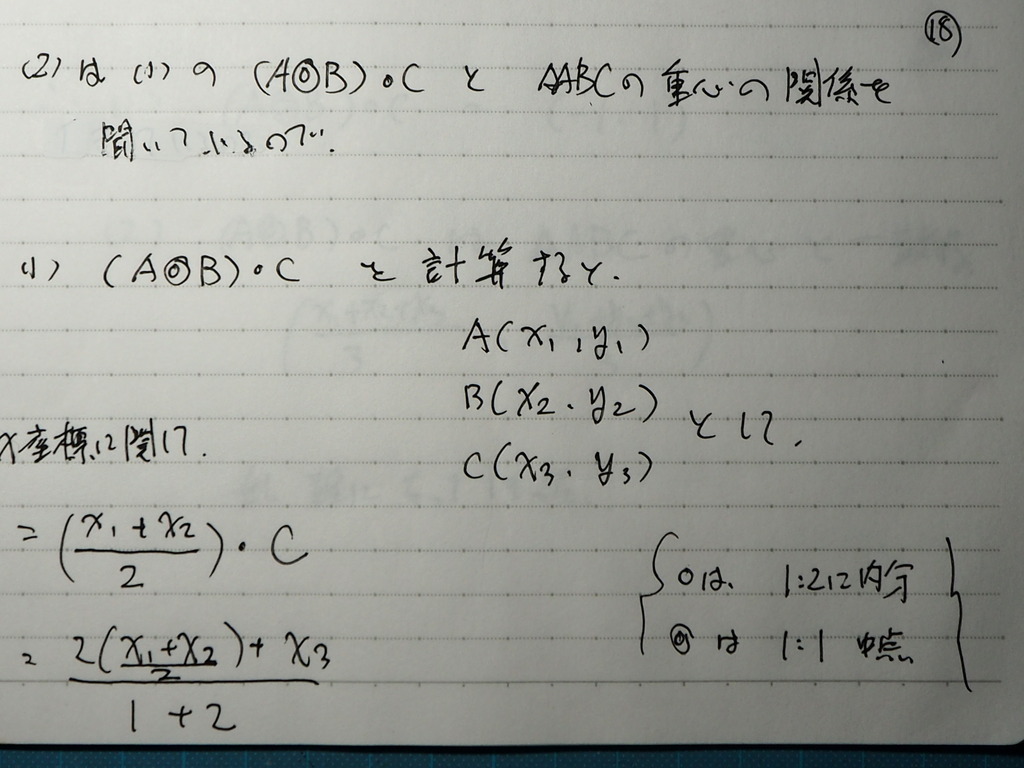 ⑱
(2) は (1) の (A◎B)∘C と △ABCの重心の関係を
聞いているので、
(1) (A◎B)∘C を計算すると、
A(x₁, y₁)
B(x₂, y₂) として、
C(x₃, y₃)
x座標に関して、
= ((x₁+x₂)/2)∘C
= (2((x₁+x₂)/2)+x₃)/(1+2)
○は、 1:2に内分
◎は 1:1 中点